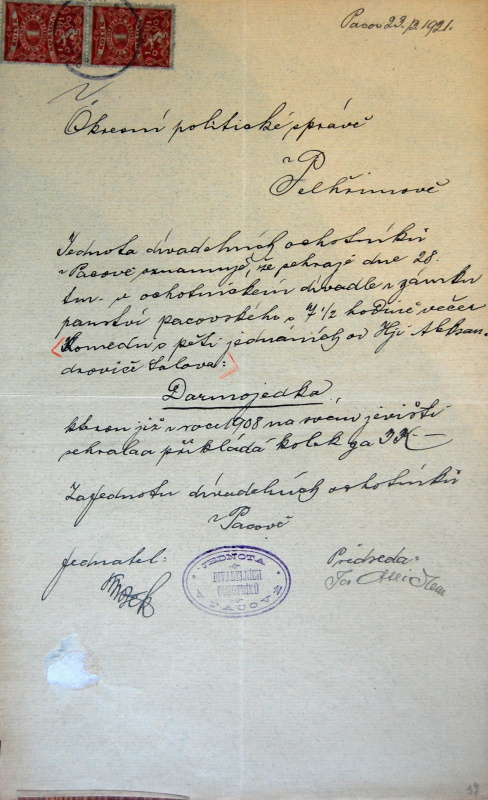 Pacov 23./3. 1921.
Okresní politické správě
v Pelhřimově
Jednota divadelních ochotníků
v Pacově oznamuje, že sehraje dne 28.
tm. v ochotnickém divadle v zámku
panství pacovského o 7 1/2 hodině večer
Komedii o pěti jednáních od Ilji Aleksan
droviče Salova:
Darmojedka
kterou již v roce 1908 na svém jevišti
sehrála a přikládá kolek za 3 K —
Za jednotu divadelních ochotníků
v Pacově
Jednatel:
Předseda:
JEDNOTA
DIVADELNÍCH
OCHOTNÍKŮ
V PACOVĚ